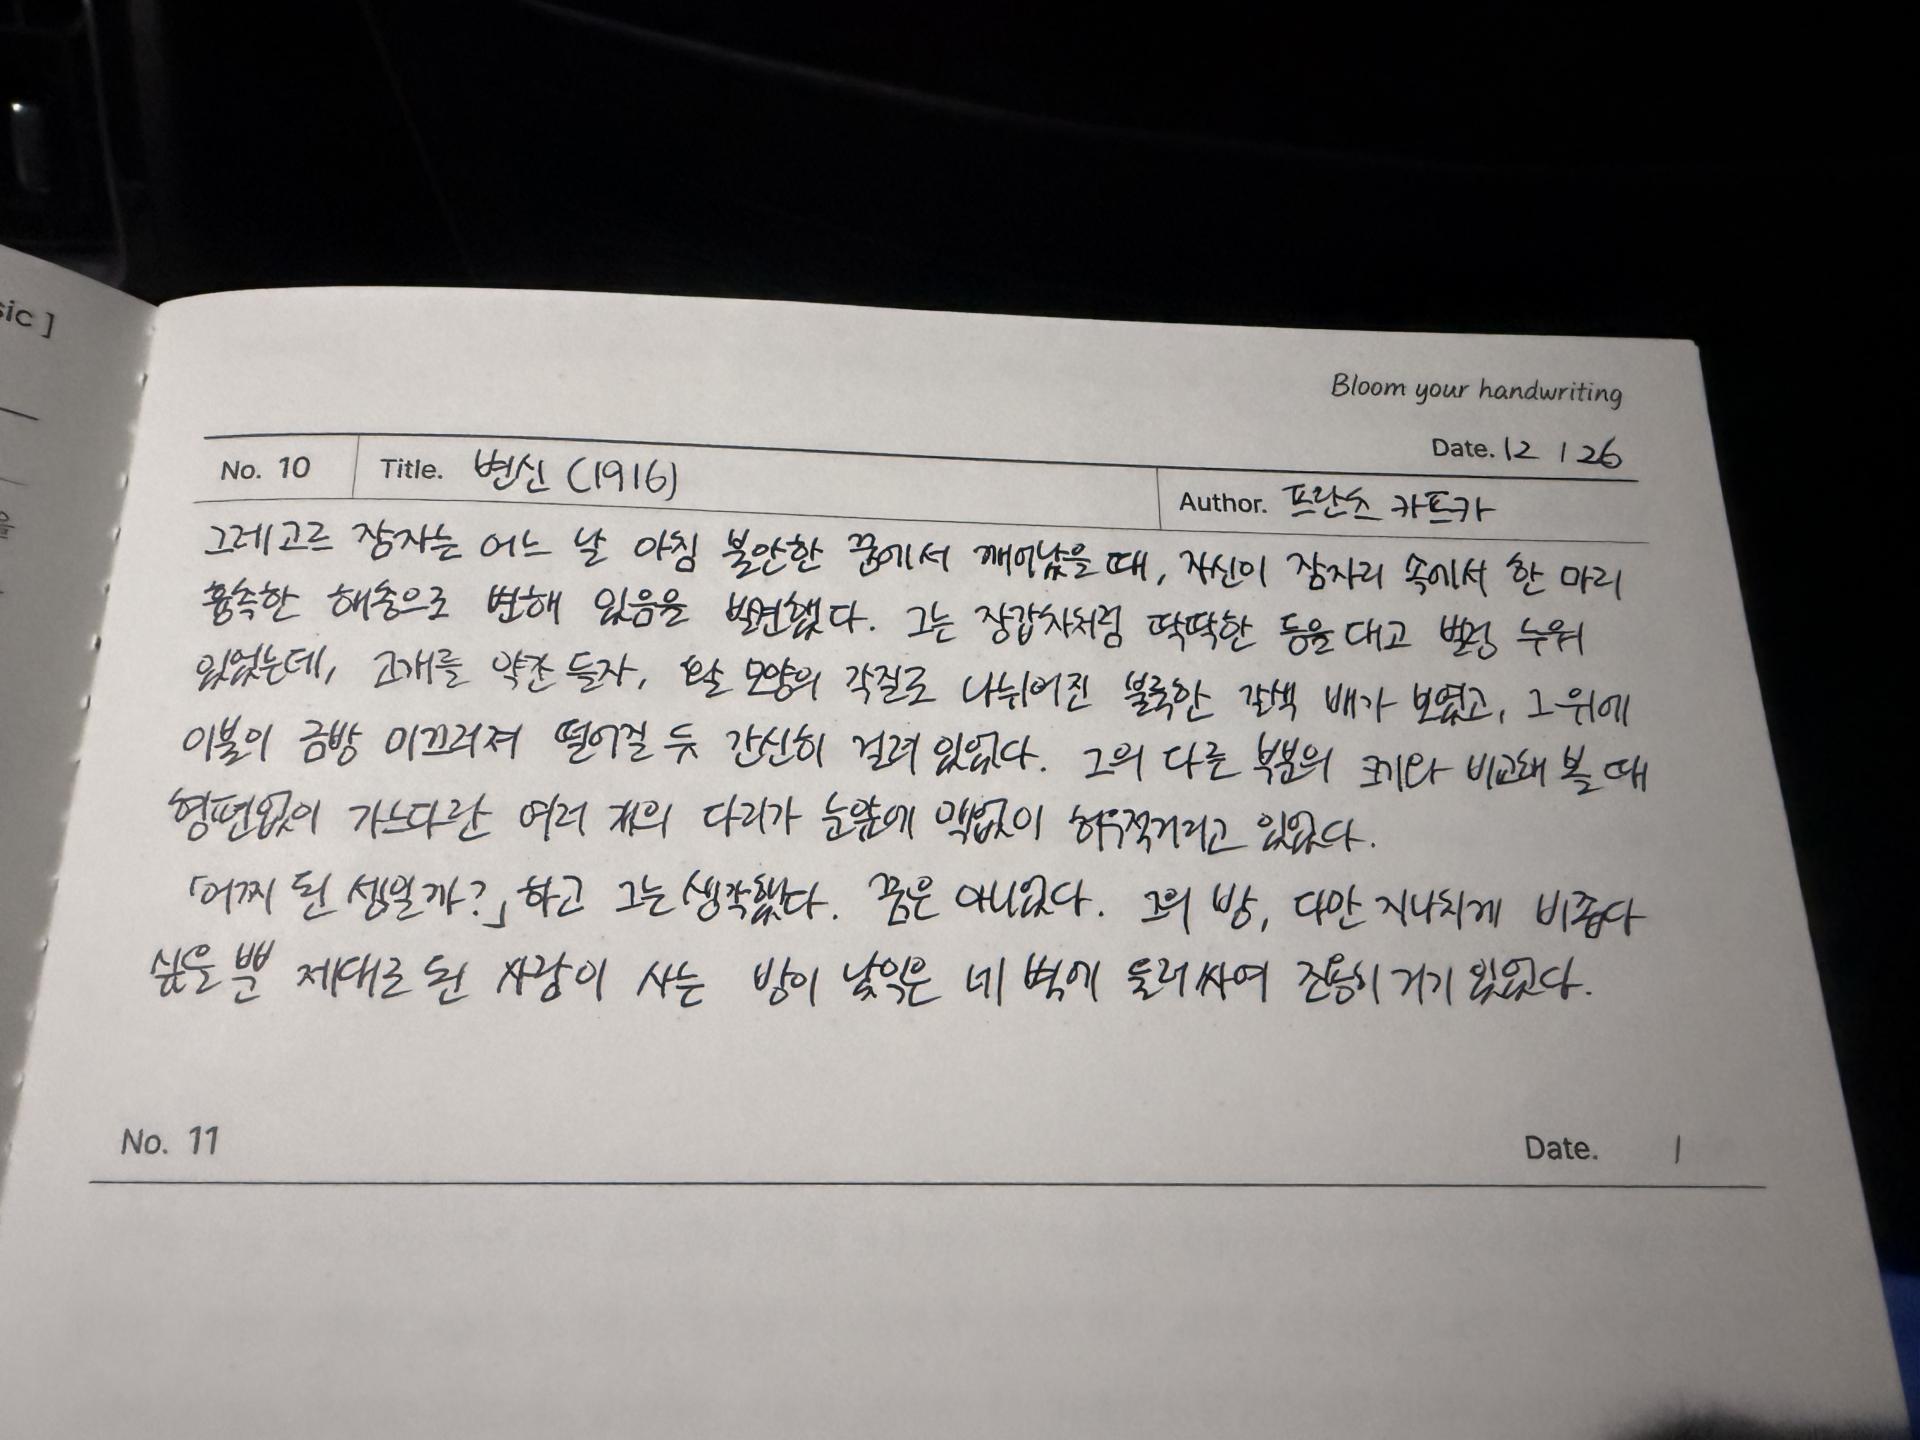 sic ]
Bloom your handwriting
Date. 12 / 26
No. 10 Title. 변신 (1916) Author. 프란츠 카프카
그레고르 잠자는 어느 날 아침 불안한 꿈에서 깨어났을 때, 자신이 잠자리 속에서 한 마리
흉측한 해충으로 변해 있음을 발견했다. 그는 장갑차처럼 딱딱한 등을 대고 벌렁 누워
있었는데, 고개를 약간 들자, 활 모양의 각질로 나뉘어진 불룩한 갈색 배가 보였고, 그 위에
이불이 금방 미끄러져 떨어질 듯 간신히 걸려 있었다. 그의 다른 부분의 크기와 비교해 볼 때
형편없이 가느다란 여러 개의 다리가 눈앞에 맥없이 허우적거리고 있었다.
「어찌 된 셈일까?」 하고 그는 생각했다. 꿈은 아니었다. 그의 방, 다만 지나치게 비좁다
싶을 뿐 제대로 된 사람이 사는 방이 낯익은 네 벽에 둘러싸여 조용히 거기 있었다.
No. 11 Date. /